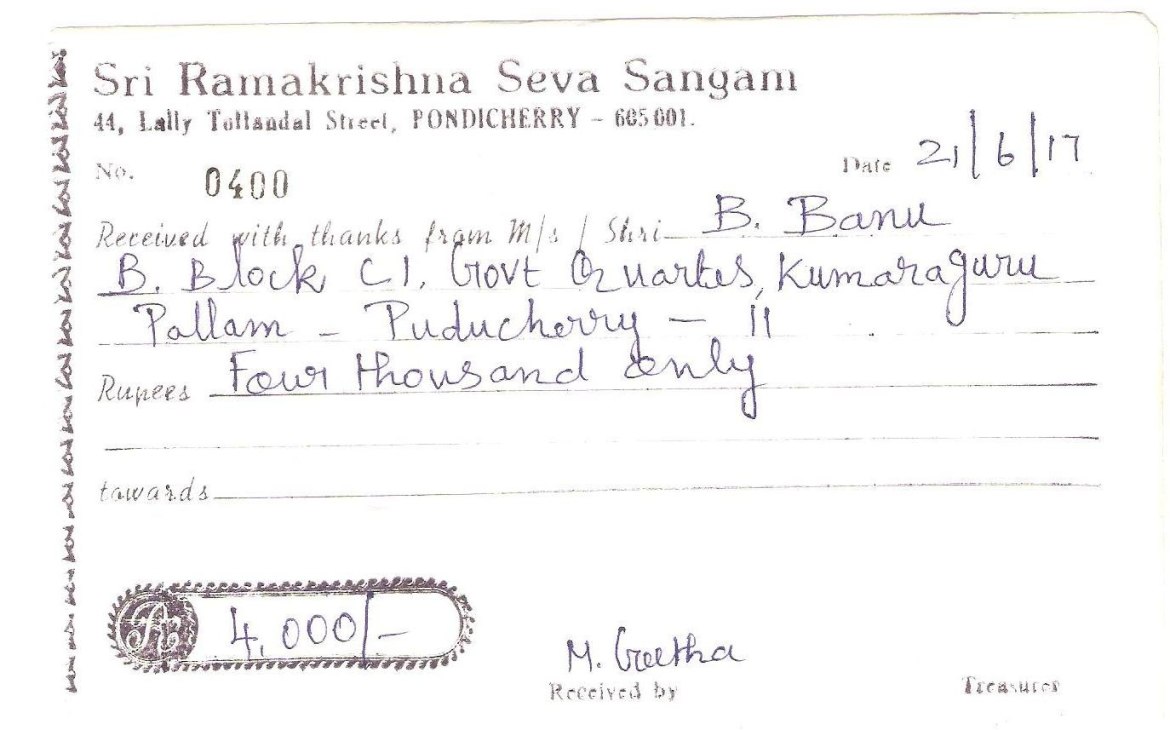 Sri Ramakrishna Seva Sangam
44, Lally Tollandal Street, PONDICHERRY - 605001.
No. 0400 Date 21/6/17
Received with thanks from M/s / Shri B. Banu
B. Block C1, Govt Quartes, Kumaraguru
Pallam - Puducherry - 11
Rupees Four thousand only
towards
Rs. 4,000/-
M. Geetha
Received by Treasurer